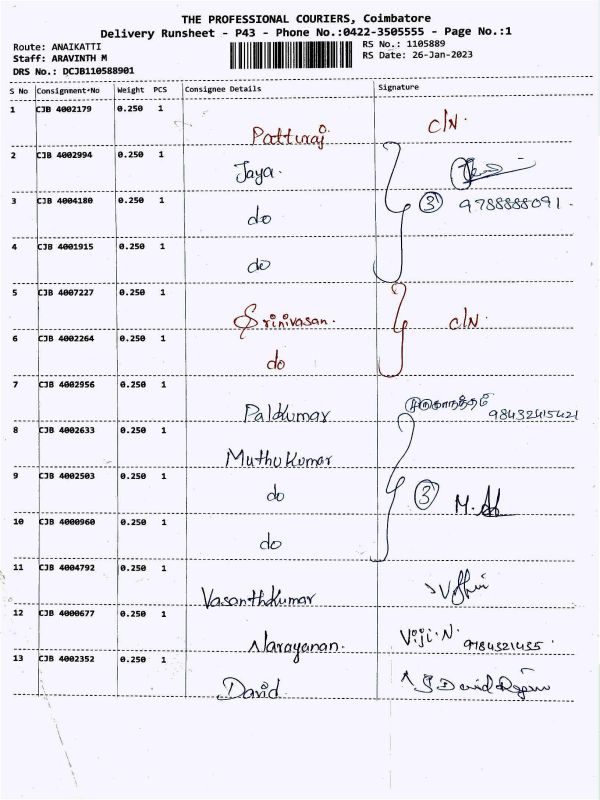 THE PROFESSIONAL COURIERS, Coimbatore
Delivery Runsheet - P43 - Phone No.:0422-3505555 - Page No.:1
Route: ANAIKATTI
RS No.: 1105889
Staff: ARAVINTH M
RS Date: 26-Jan-2023
DRS No.: DCJB110588901
S No Consignment-No Weight PCS Consignee Details Signature
1 CJB 4002179 0.250 1 Patturaj C/N.
2 CJB 4002994 0.250 1 Jaya.
3 CJB 4004180 0.250 1 do 3 9788888091.
4 CJB 4001915 0.250 1 do
5 CJB 4007227 0.250 1 Srinivasan. C/N.
6 CJB 4002264 0.250 1 do
7 CJB 4002956 0.250 1 Palkumar 98432415421
8 CJB 4002633 0.250 1 Muthukumar
9 CJB 4002503 0.250 1 do 3
10 CJB 4000960 0.250 1 do
11 CJB 4004792 0.250 1 Vasanthakumar
12 CJB 4000677 0.250 1 Narayanan. Viji.N.
13 CJB 4002352 0.250 1 David.